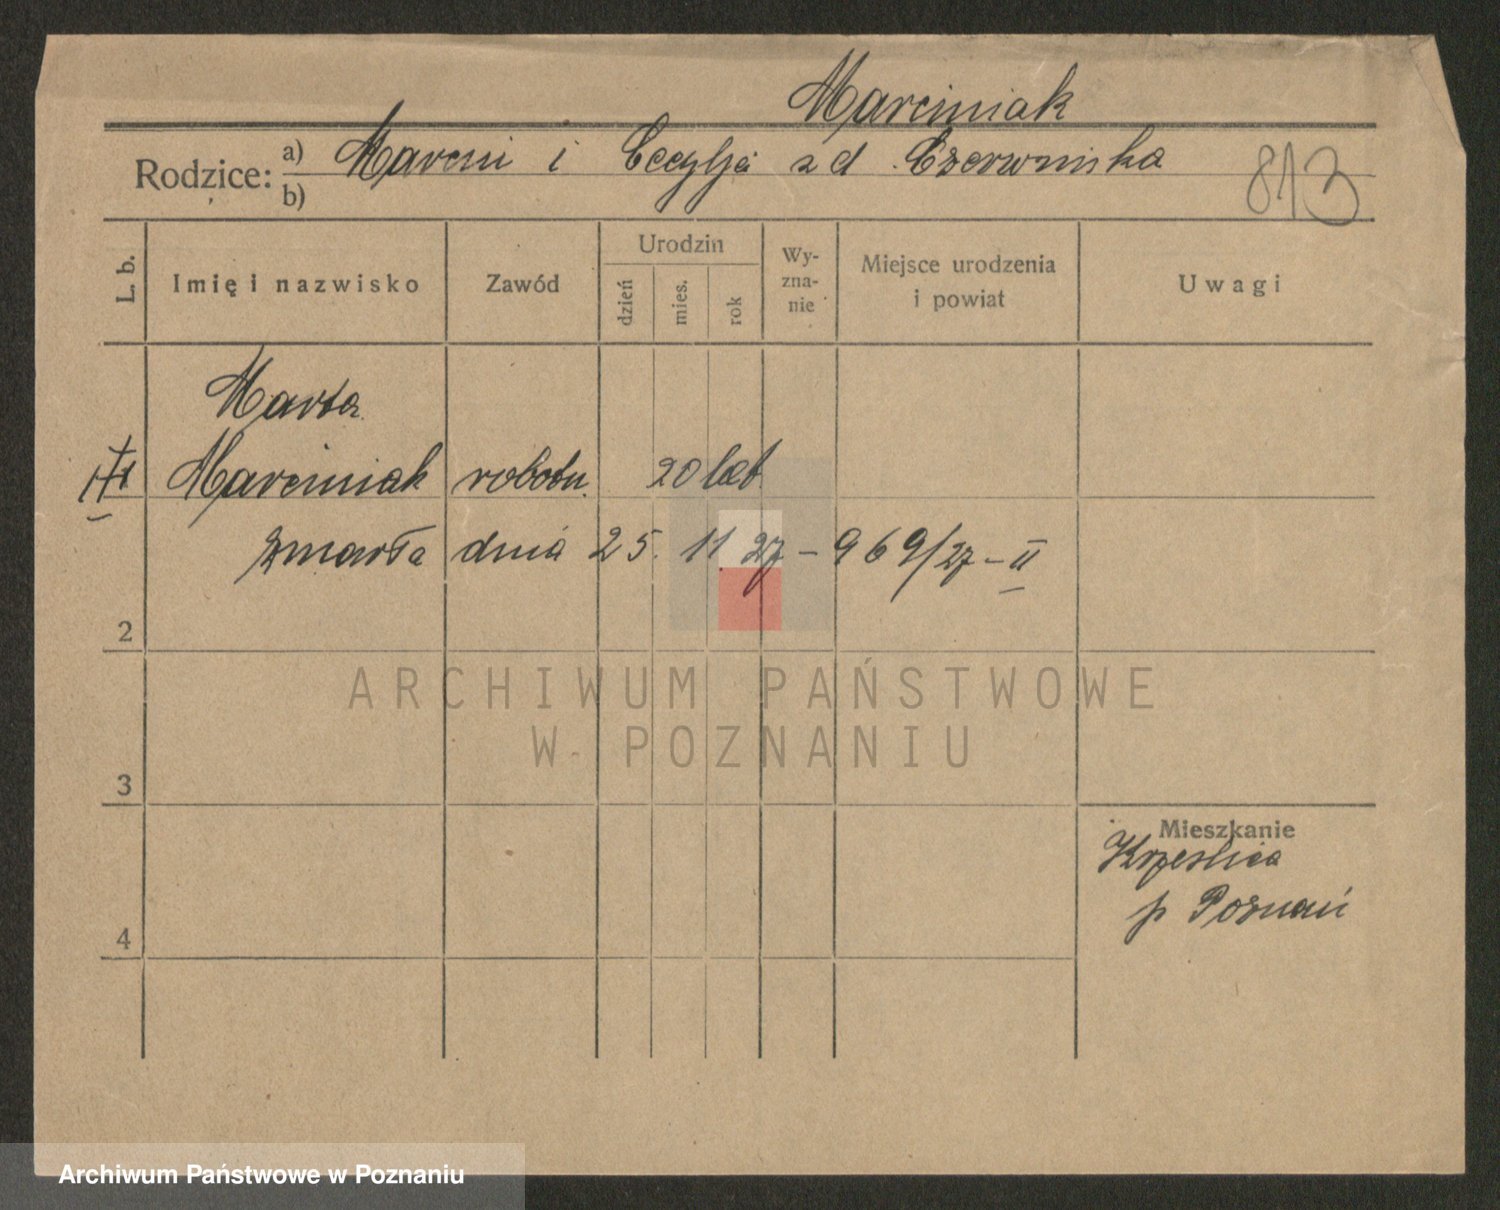 Marciniak
Rodzice: a) Marcin i Cecylja z d. Czerwińska
b)
813
L. b. Imię i nazwisko Zawód Urodzin dzień mies. rok Wyzna-nie Miejsce urodzenia i powiat Uwagi
Marta
Marciniak robotn. 20 lat
zmarła dnia 25. 11. 27 – 969/27 – II
2
3
4
Mieszkanie
Krześlice
p Poznań
ARCHIWUM PAŃSTWOWE
W POZNANIU
Archiwum Państwowe w Poznaniu